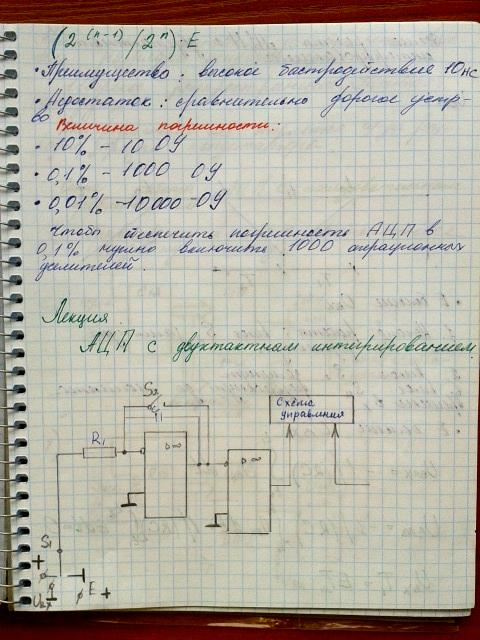 (2^(n-1) / 2^n) · E
• Преимущество: высокое быстродействие 10нс
• Недостаток: сравнительно дорогое устр-
во
Величина погрешности:
• 10% – 10 ОУ
• 0,1% – 1000 ОУ
• 0,01% – 10000 – ОУ
Чтобы обеспечить погрешность АЦП в
0,1% нужно включить 1000 операционных
усилителей.
Лекция
АЦП с двухтактным интегрированием
S2
C1
Схема
управления
R1
▷∞
▷∞
S1
+
Uвх
E +